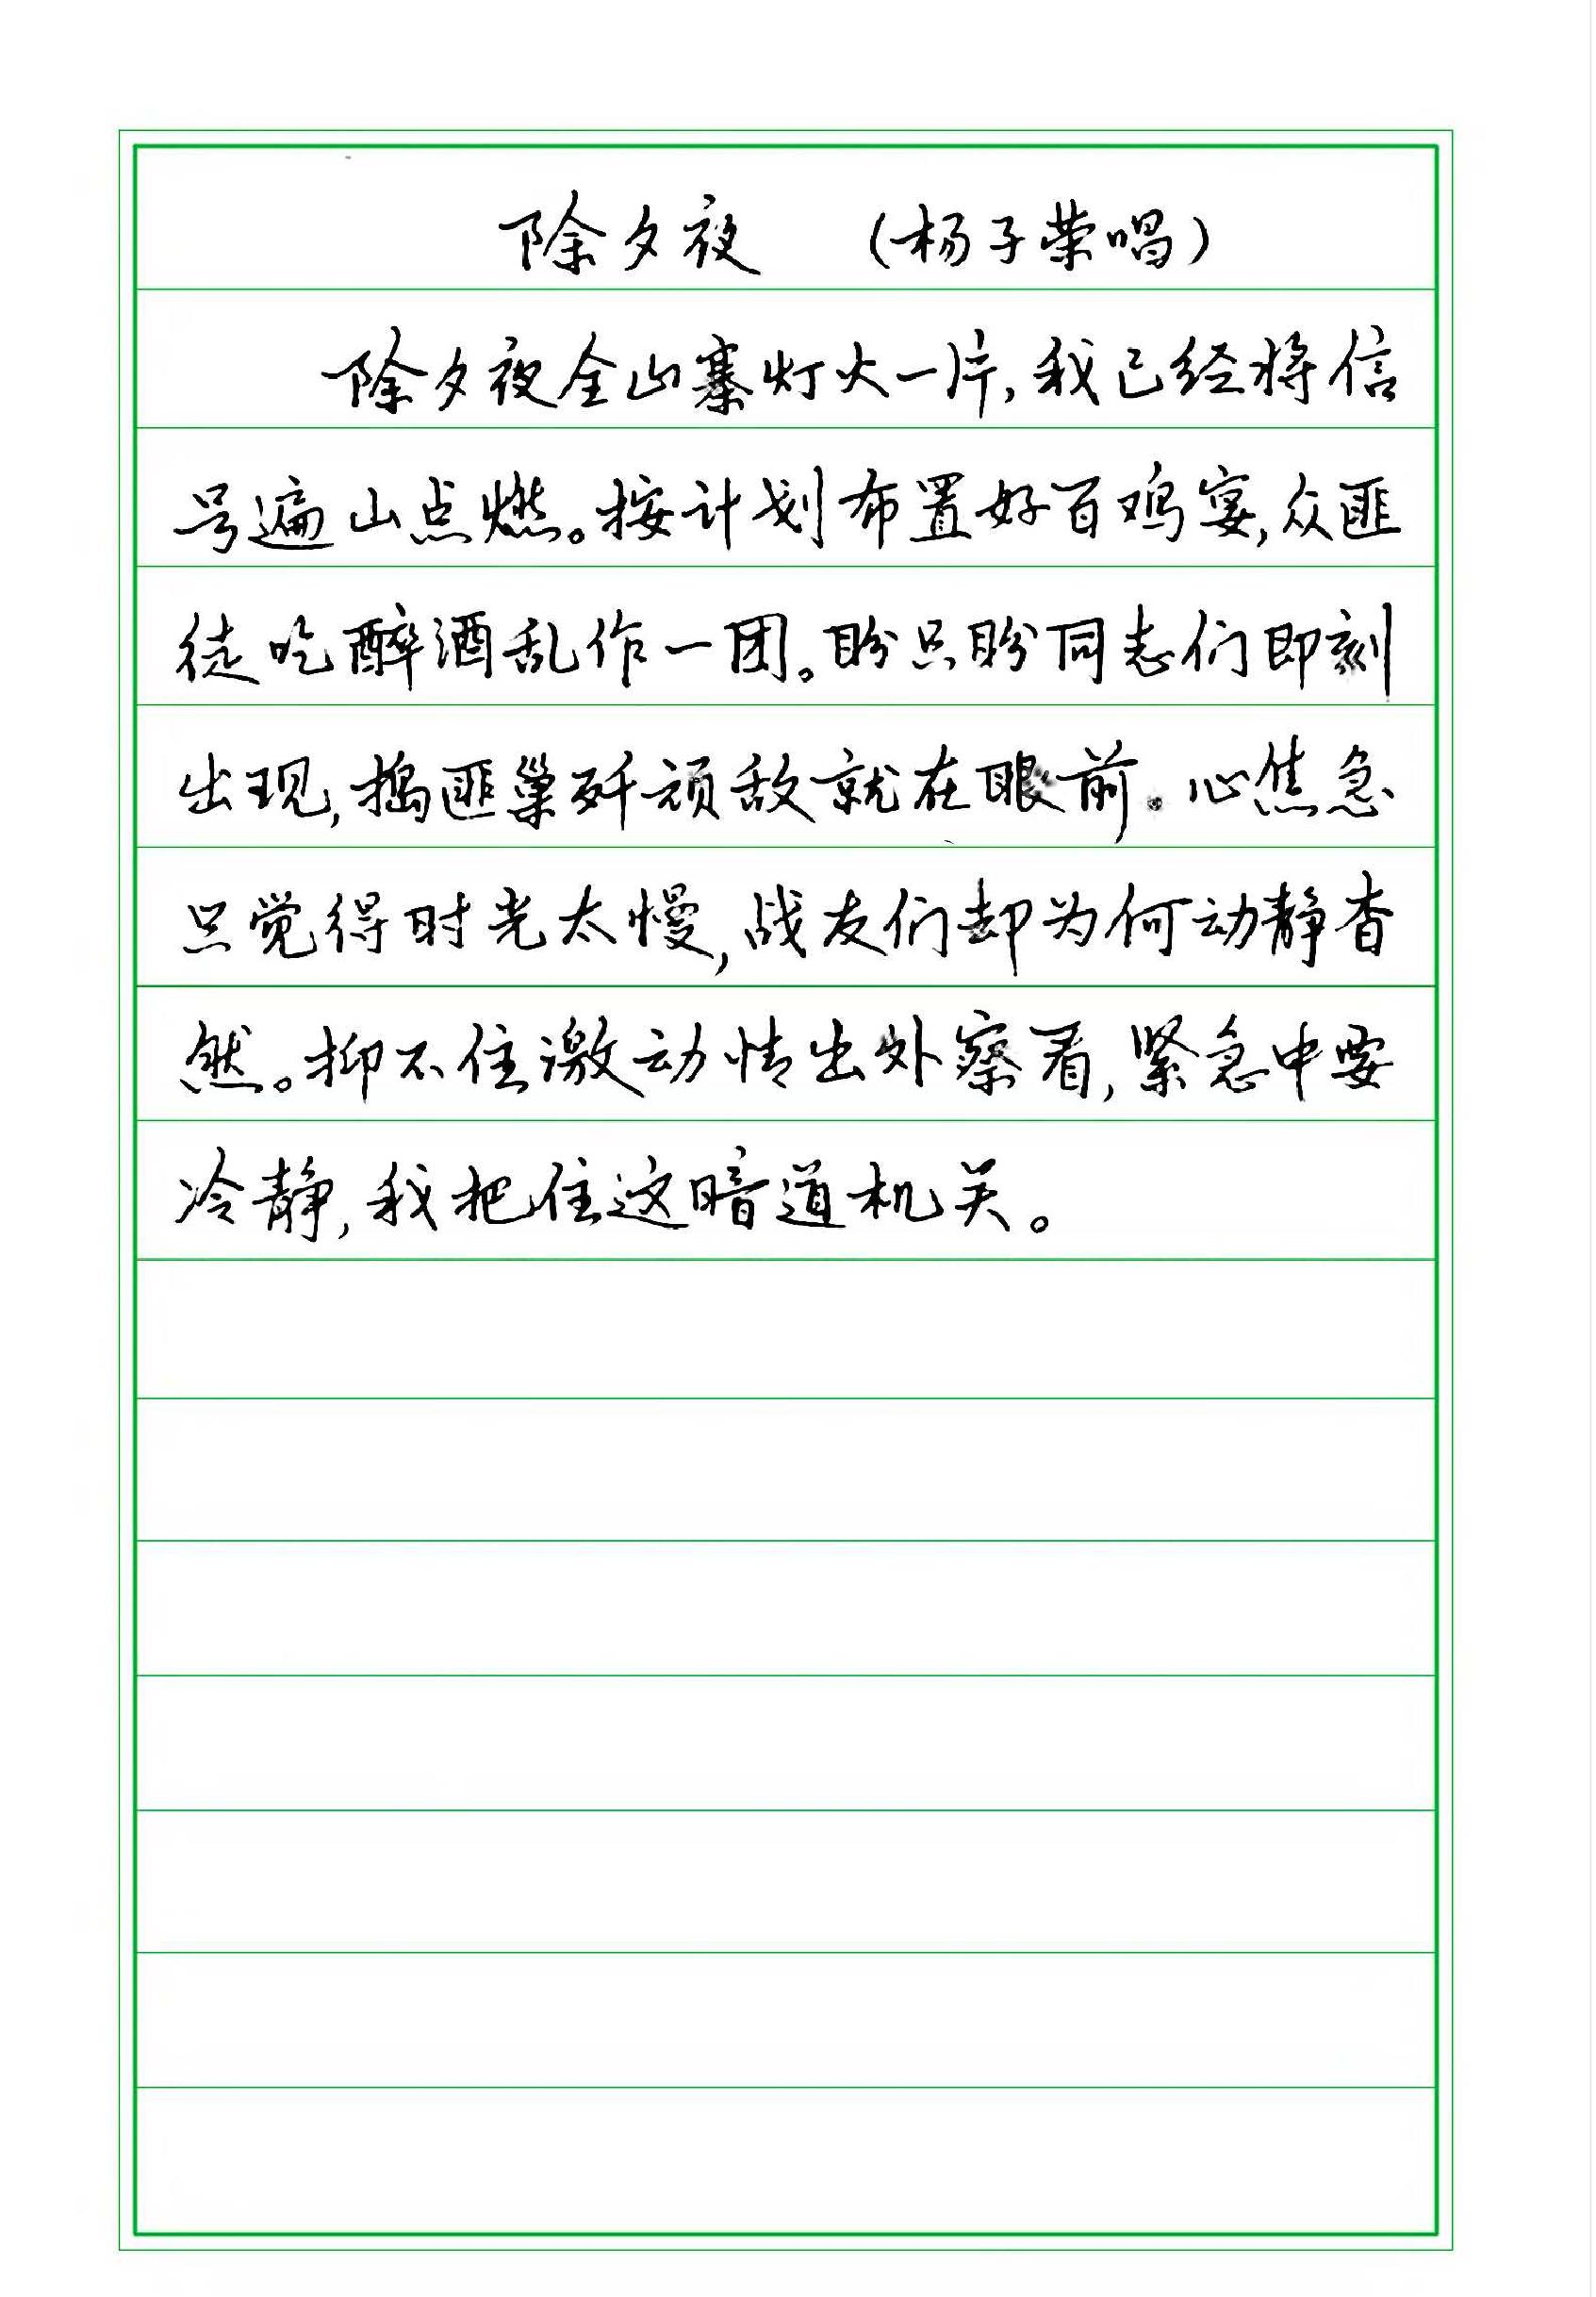 除夕夜 （杨子荣唱）
除夕夜全山寨灯火一片，我已经将信
号遍山点燃。按计划布置好百鸡宴，众匪
徒吃醉酒乱作一团。盼只盼同志们即刻
出现，捣匪巢歼顽敌就在眼前。心焦急
只觉得时光太慢，战友们却为何动静杳
然。抑不住激动情出外察看，紧急中要
冷静，我把住这暗道机关。